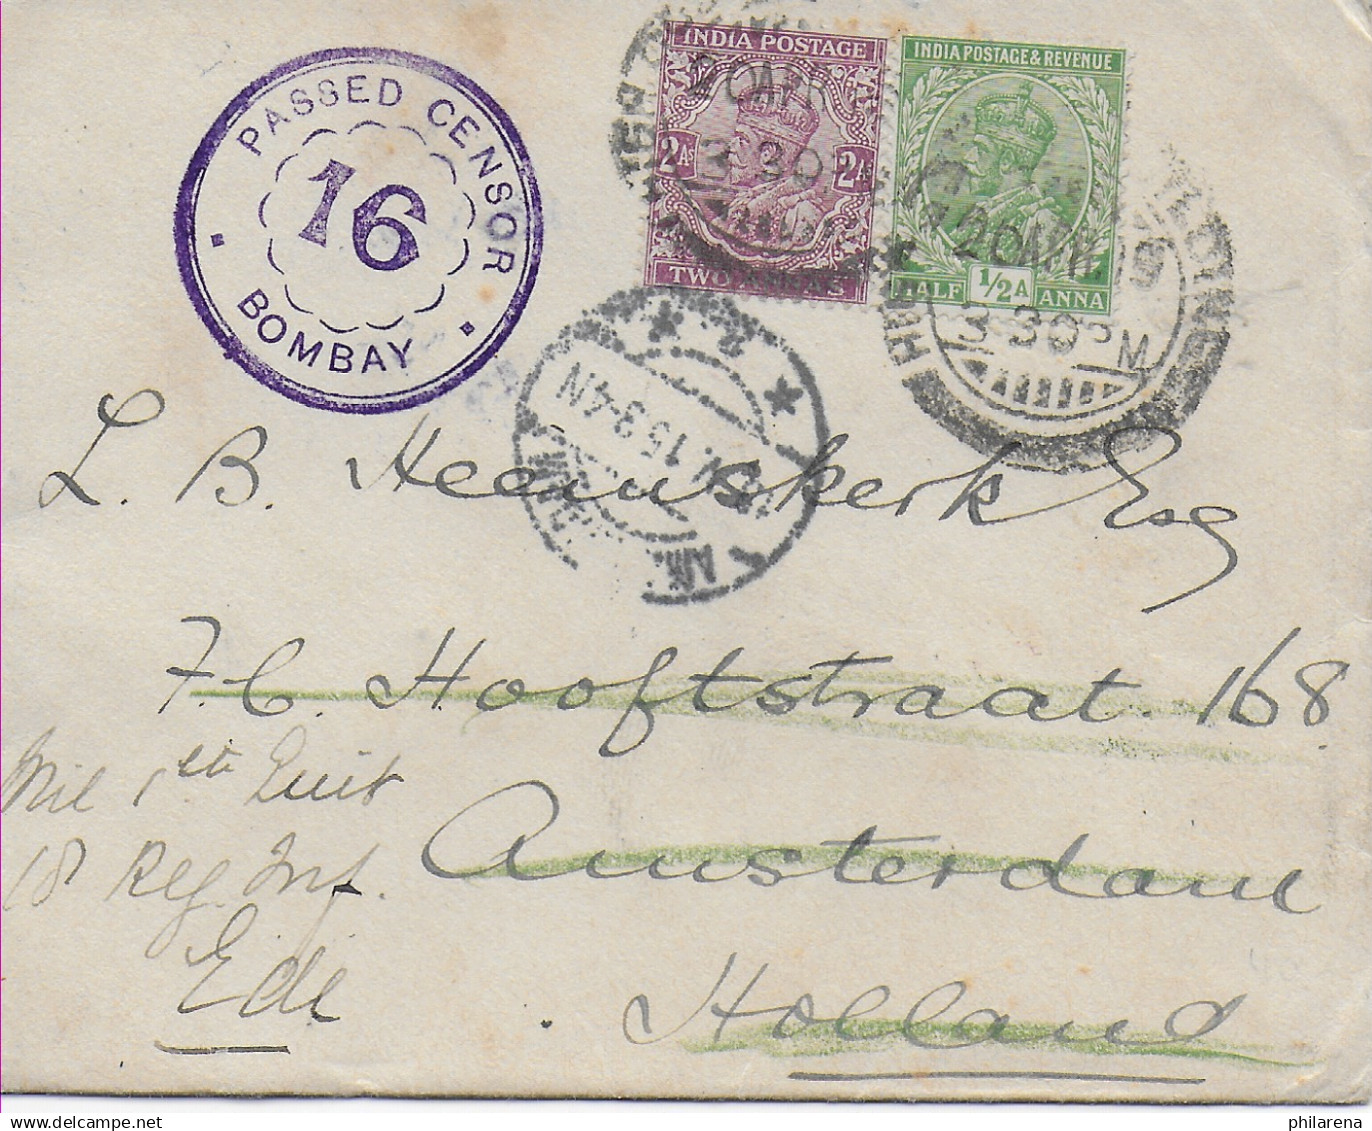 PASSED CENSOR
16
BOMBAY
INDIA POSTAGE
2As 2As
TWO ANNAS
INDIA POSTAGE & REVENUE
HALF 1/2A ANNA
3 30
3 30 PM
15.3-4N
L. B. Heemskerk Esq
P. C. Hooftstraat. 168
Amsterdam
Holland
Mil 1ste Luit
18 Reg. Inf.
Ede
philarena.com